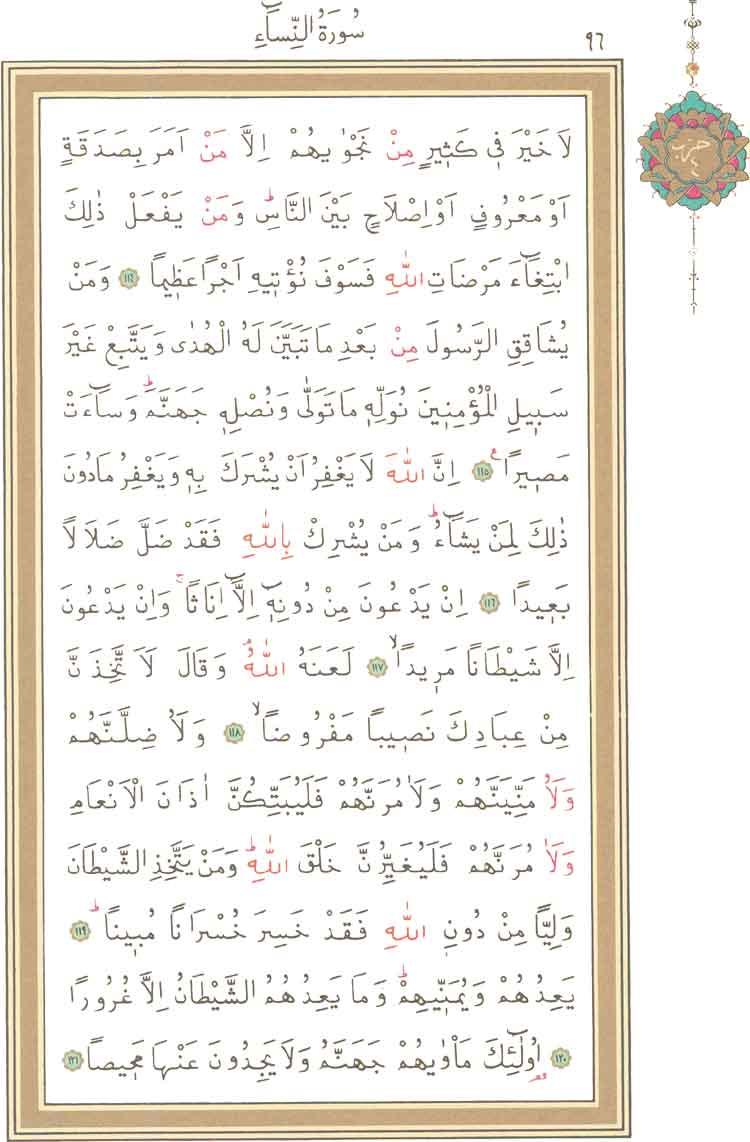 سُورَةُ النِّسَٓاءِ
٩٦
حزب
٤
لَا خَيْرَ ف۪ي كَث۪يرٍ مِنْ نَجْوٰيهُمْ اِلَّا مَنْ اَمَرَ بِصَدَقَةٍ
اَوْ مَعْرُوفٍ اَوْ اِصْلَاحٍ بَيْنَ النَّاسِۜ وَمَنْ يَفْعَلْ ذٰلِكَ
ابْتِغَٓاءَ مَرْضَاتِ اللّٰهِ فَسَوْفَ نُؤْت۪يهِ اَجْرًا عَظ۪يمًا ﴿١١٤﴾ وَمَنْ
يُشَاقِقِ الرَّسُولَ مِنْ بَعْدِ مَا تَبَيَّنَ لَهُ الْهُدٰى وَيَتَّبِعْ غَيْرَ
سَب۪يلِ الْمُؤْمِن۪ينَ نُوَلِّه۪ مَا تَوَلّٰى وَنُصْلِه۪ جَهَنَّمَۜ وَسَٓاءَتْ
مَص۪يرًا۟ ﴿١١٥﴾ اِنَّ اللّٰهَ لَا يَغْفِرُ اَنْ يُشْرَكَ بِه۪ وَيَغْفِرُ مَا دُونَ
ذٰلِكَ لِمَنْ يَشَٓاءُۜ وَمَنْ يُشْرِكْ بِاللّٰهِ فَقَدْ ضَلَّ ضَلَالًا
بَع۪يدًا ﴿١١٦﴾ اِنْ يَدْعُونَ مِنْ دُونِه۪ٓ اِلَّٓا اِنَاثًاۚ وَاِنْ يَدْعُونَ
اِلَّا شَيْطَانًا مَر۪يدًاۙ ﴿١١٧﴾ لَعَنَهُ اللّٰهُۢ وَقَالَ لَاَتَّخِذَنَّ
مِنْ عِبَادِكَ نَص۪يبًا مَفْرُوضًاۙ ﴿١١٨﴾ وَلَاُضِلَّنَّهُمْ
وَلَاُمَنِّيَنَّهُمْ وَلَاٰمُرَنَّهُمْ فَلَيُبَتِّكُنَّ اٰذَانَ الْاَنْعَامِ
وَلَاٰمُرَنَّهُمْ فَلَيُغَيِّرُنَّ خَلْقَ اللّٰهِۜ وَمَنْ يَتَّخِذِ الشَّيْطَانَ
وَلِيًّا مِنْ دُونِ اللّٰهِ فَقَدْ خَسِرَ خُسْرَانًا مُب۪ينًاۜ ﴿١١٩﴾
يَعِدُهُمْ وَيُمَنّ۪يهِمْۜ وَمَا يَعِدُهُمُ الشَّيْطَانُ اِلَّا غُرُورًا
﴿١٢٠﴾ اُو۬لٰٓئِكَ مَأْوٰيهُمْ جَهَنَّمُ وَلَا يَجِدُونَ عَنْهَا مَح۪يصًا ﴿١٢١﴾